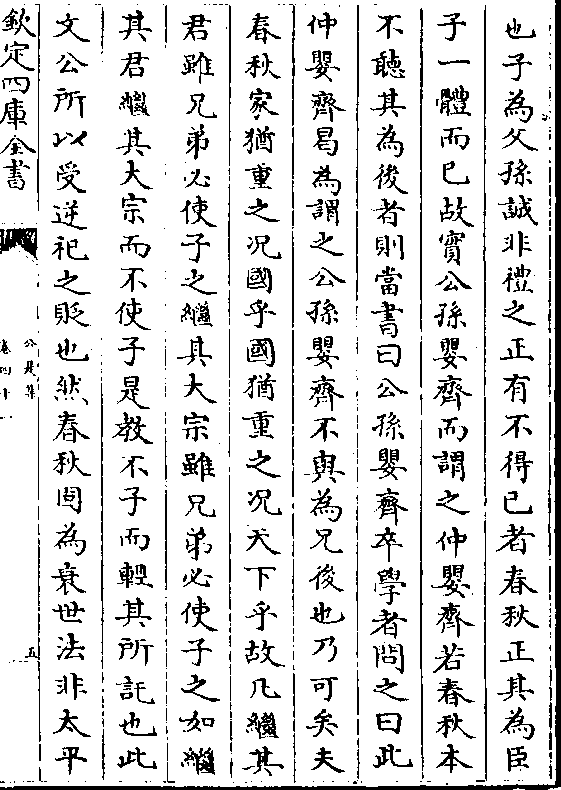 也子為父孫誠非禮之正有不得已者春秋正其為臣
子一體而已故實公孫嬰齊而謂之仲嬰齊若春秋本
不聽其為後者則當書曰公孫嬰齊卒學者問之曰此
仲嬰齊曷為謂之公孫嬰齊不與為兄後也乃可矣夫
春秋家猶重之况國乎國猶重之况天下乎故凡繼其
君雖兄弟必使子之繼其大宗雖兄弟必使子之如繼
其君繼其大宗而不使子是教不子而輕其所託也此
文公所以受逆祀之貶也然春秋固為衰世法非太平
欽定四庫全書
公是集
卷四十一
五